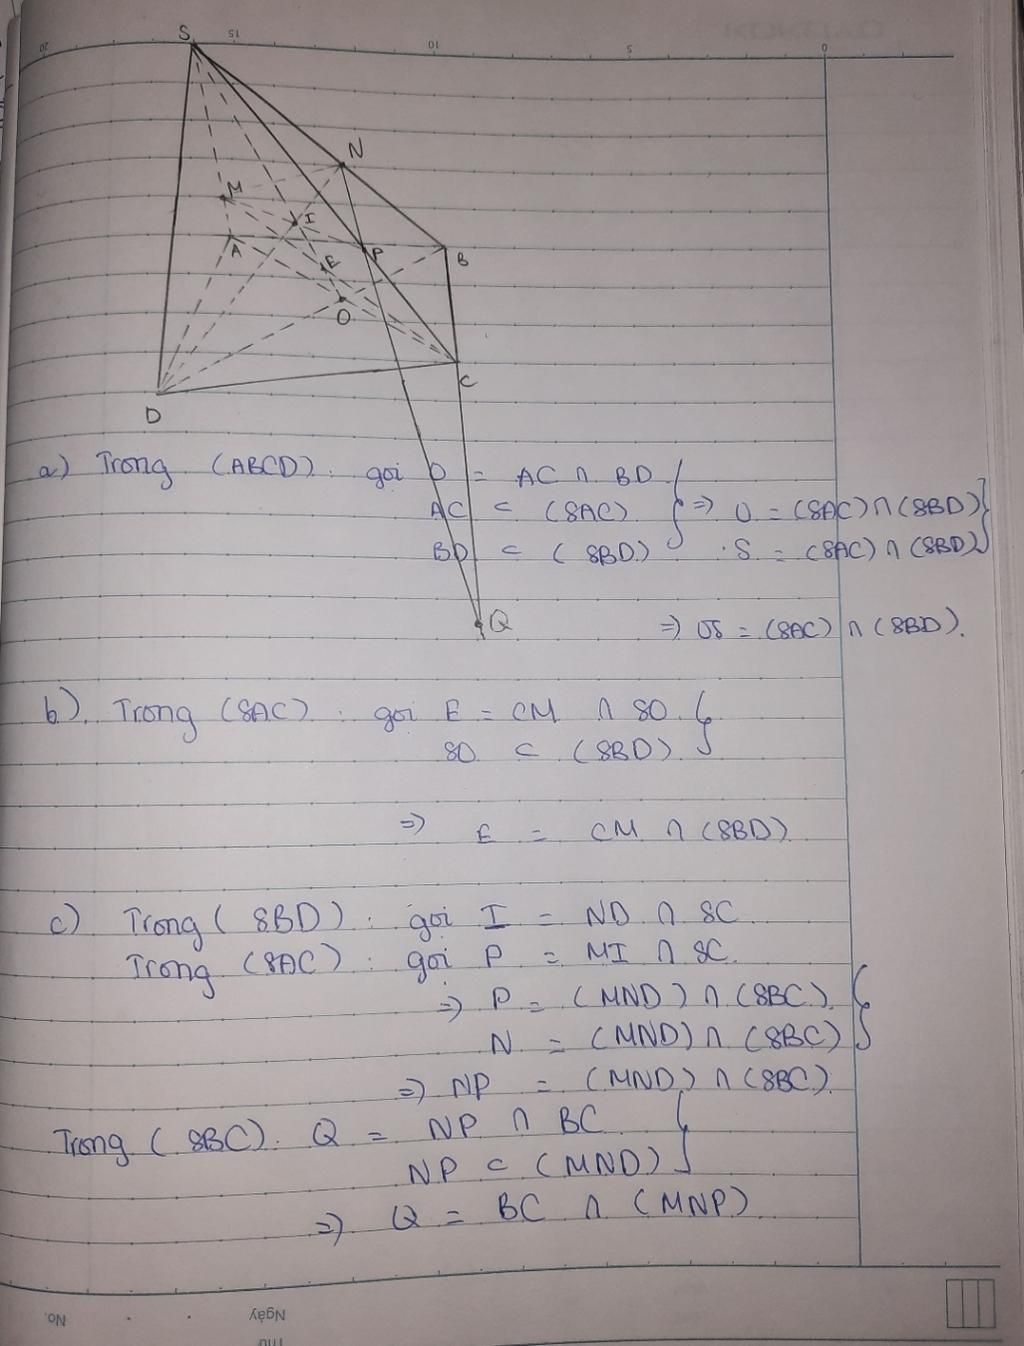 20
15
10
5
0
S
N
M
I
A
P
B
E
O
C
D
a) Trong (ABCD): gọi O = AC ∩ BD }
AC ⊂ (SAC) } => O = (SAC) ∩ (SBD) }
BD ⊂ (SBD) . S = (SAC) ∩ (SBD) }
Q
=> OS = (SAC) ∩ (SBD).
b). Trong (SAC): gọi E = CM ∩ SO. }
SO ⊂ (SBD). }
=> E = CM ∩ (SBD).
c) Trong (SBD): gọi I = ND ∩ SC
Trong (SAC): gọi P = MI ∩ SC.
=> P = (MND) ∩ (SBC). }
N = (MND) ∩ (SBC) }
=> NP = (MND) ∩ (SBC).
Trong (SBC). Q = NP ∩ BC }
NP ⊂ (MND) }
=> Q = BC ∩ (MNP)
No.
Ngày
Thứ